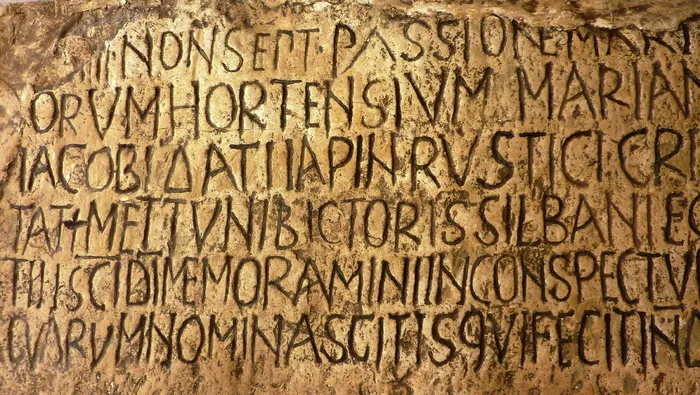 IIII NONSEPT·PASSIONE MART
ORVMHORTENSIVM MARIAN
IACOBI DATI IAPIN RVSTICI CRI
TAT+METTVNI BICTORIS SILBANI E
TIIISCIDIMEMORAMINIINCONSPECTV
QVARVMNOMINASCITISQVIFECITIN